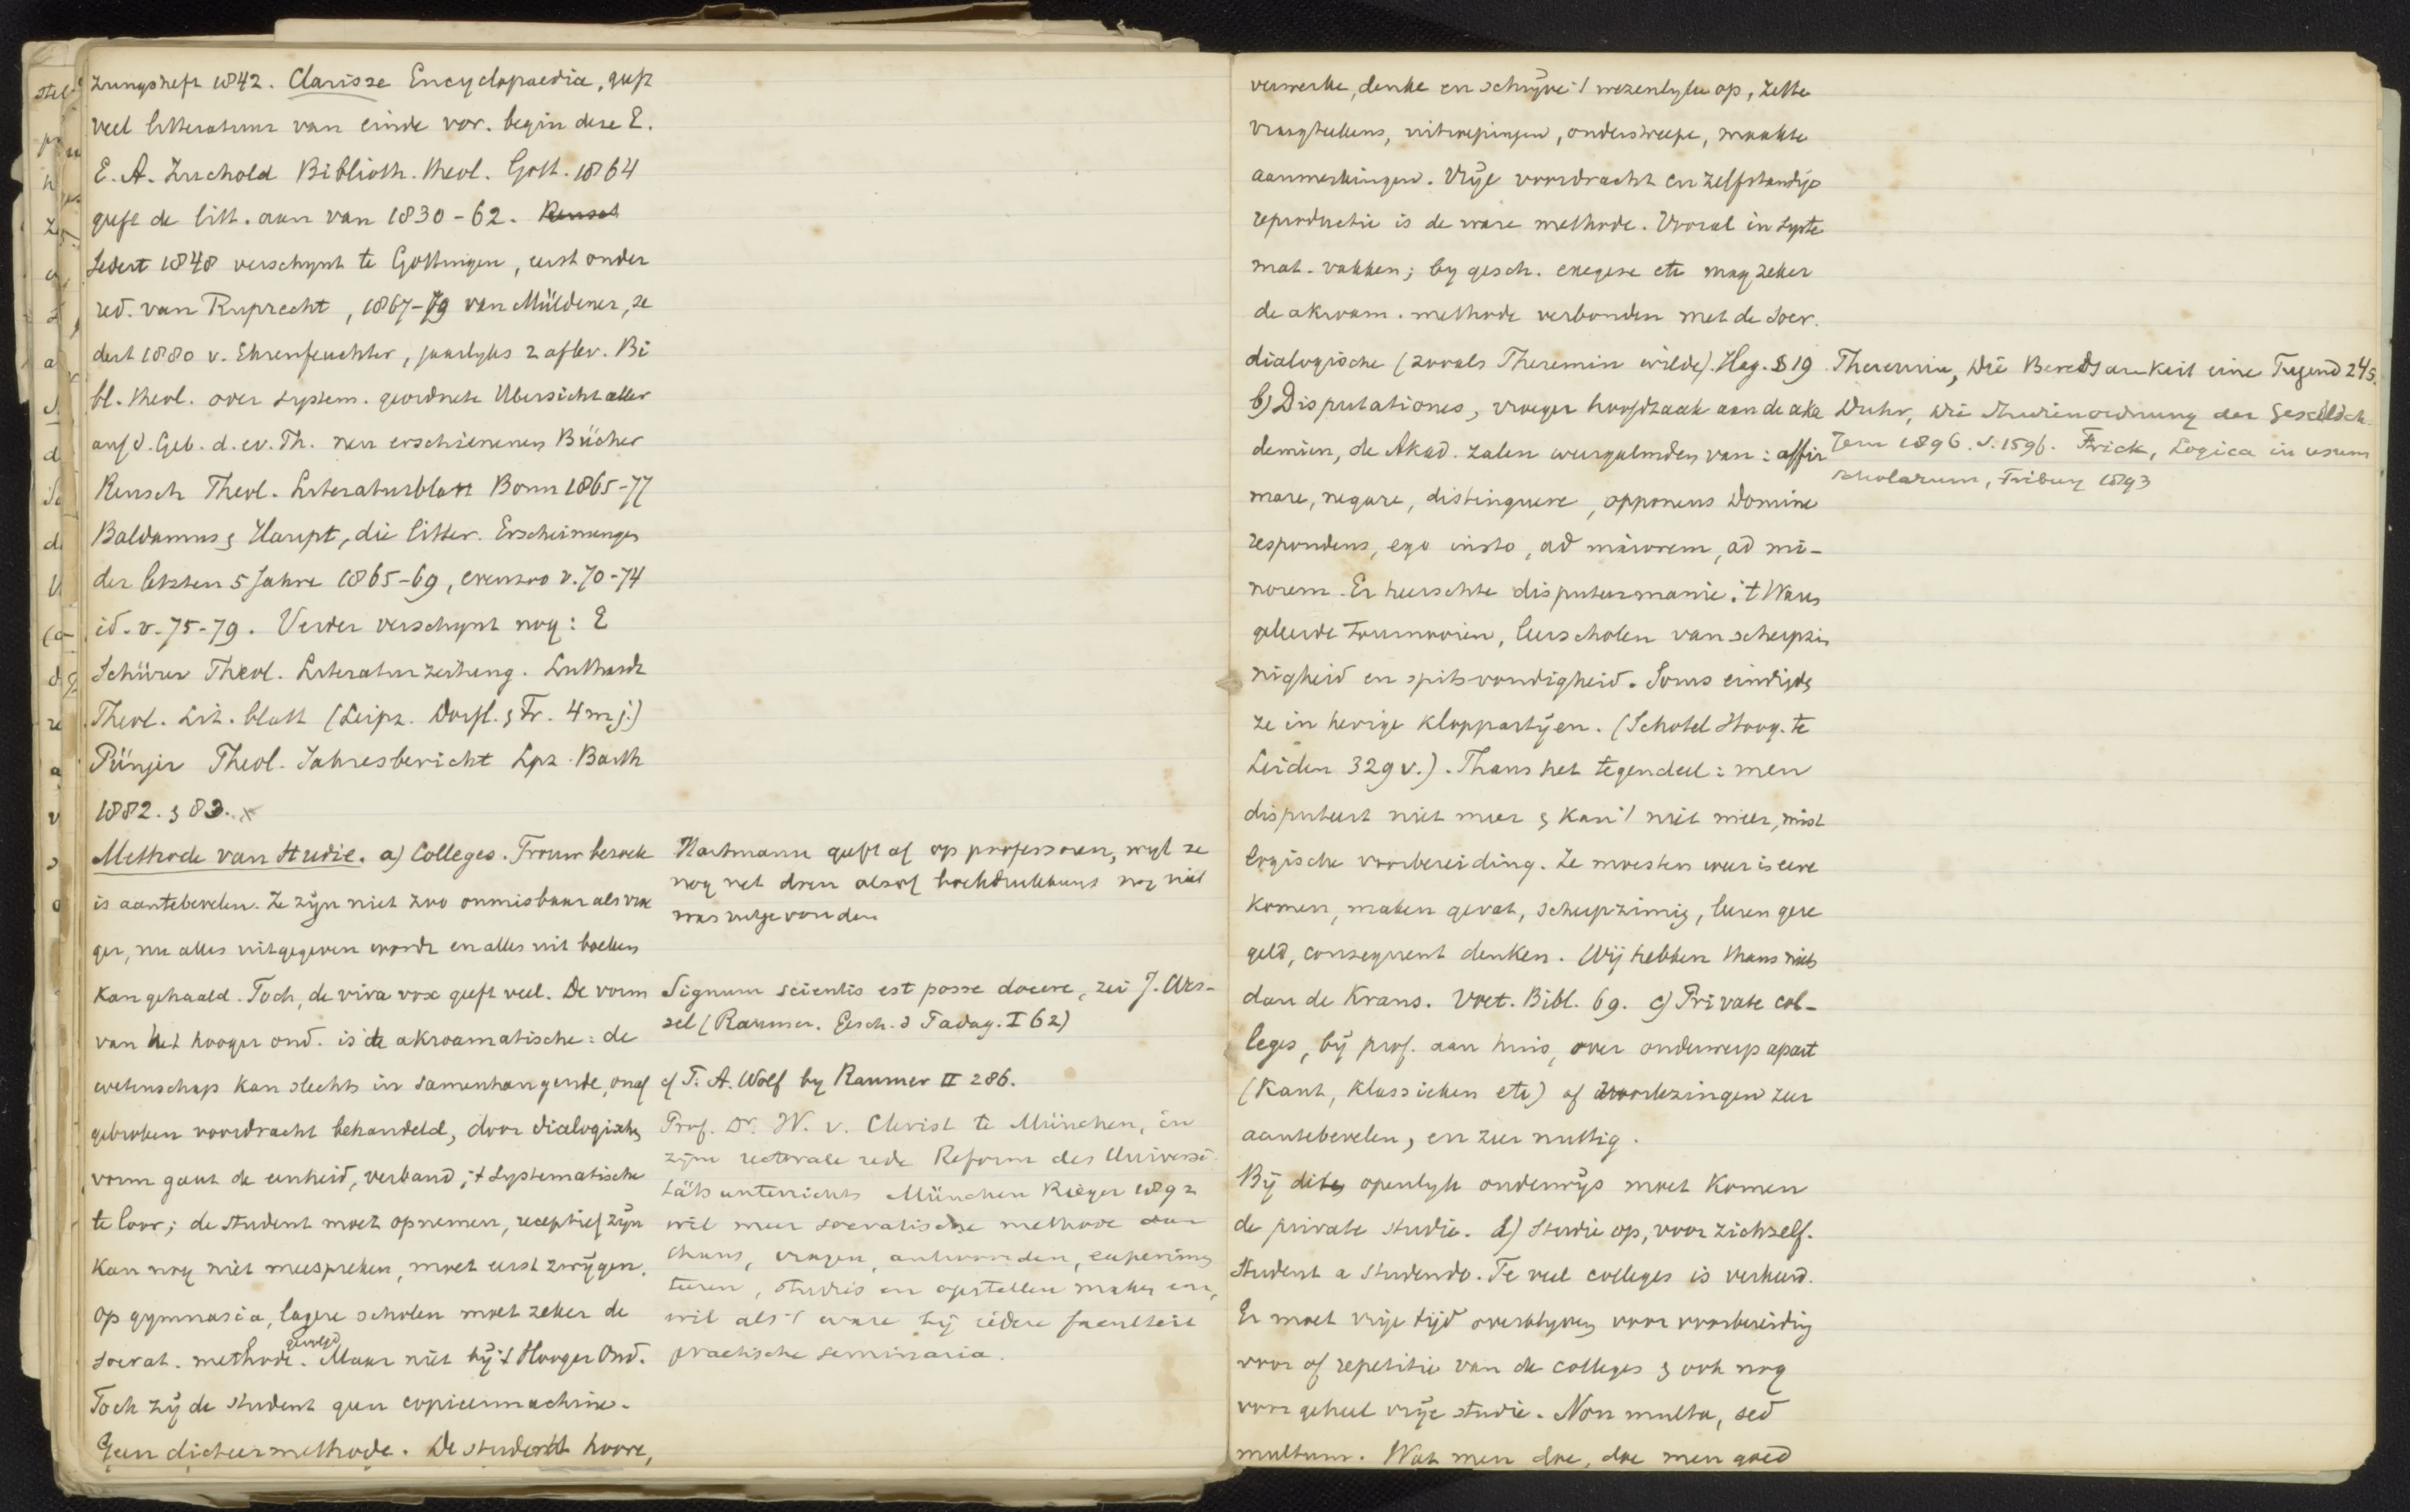 zungsheft 1842. Clarisse Encyclopaedia, geeft
veel litteratuur van einde vor. begin deze E.
E. A. Zuchold Biblioth. theol. Gött. 1864
geeft de litt. aan van 1830-62.
Sedert 1848 verschynt te Gottingen, eerst onder
red. van Ruprecht, 1867-79 van Müldener, se
dert 1880 v. Ehrenfeuchter, jaarlyks 2 aflev. Bi
bl. theol. over system. geordnete Übersicht aller
auf d. Geb. d. ev. Th. neu erschienenen Bücher
Reusch Theol. Literaturblatt Bonn 1865-77
Baldamus & Haupt, die litter. Erscheinungen
der letzten 5 Jahre 1865-69, evenzoo v. 70-74
id. v. 75-79. Verder verschynt nog: E
Schürer Theol. Literaturzeitung. Luthardt
Theol. Lit. blatt (Leipz. Dörfl. & Fr. 4 m j.)
Pünjer Theol. Jahresbericht Lpz. Barth
1882. & 83.
Methode van studie. a) Colleges. Trouw bezoek
is aantebevelen. Ze zijn niet zoo onmisbaar als vroe
ger, nu alles uitgegeven wordt en alles uit boeken
kan gehaald. Toch, de viva vox geeft veel. De vorm
van het hooger ond. is de akroamatische: de
wetenschap kan slechts in samenhangende, onaf
gebroken voordracht behandeld, door dialogische
vorm gaat de eenheid, verband, 't systematische
te loor; de student moet opnemen, receptief zijn
kan nog niet meespreken, moet eerst zwijgen.
Op gymnasia, lagere scholen moet zeker de
socrat. methode gevolgd. Maar niet bij 't Hooger Ond.
Toch zij de student geen copieermachine.
Geen dicteermethode. De student hoore,
Hartmann geeft af op professoren, wyl ze
nog net doen alsof boekdrukkunst nog niet
was uitgevonden
Signum scientis est posse docere, zei J. Wes-
sel (Raumer. Gesch. d Padag. I 62)
cf F. A. Wolf by Raumer II 286.
Prof. Dr. W. v. Christ te München, in
zijne rectorale rede Reform des Universi-
tätsunterrichts München Rieger 1892
wil meer socratische methode dan
thans, vragen, antwoorden, experimen
teeren, studies en opstellen maken en,
wil als 't ware bij iedere faculteit
practische seminaria.
verwerke, denke en schrijve 't wezenlyke op, zette
vraagteekens, uitroepingen, onderstreepe, maakte
aanmerkingen. Vrije voordracht en zelfstandige
reproductie is de ware methode. Vooral in syste
mat. vakken; by gesch. exegese etc mag zeker
de akroam. methode verbonden met de Socr.
dialogische (zooals Theremin wilde). Hag. § 19
b) Disputationes, vroeger hoofdzaak aan de aka
demien, de Akad. zalen weergalmden van: affir
mare, negare, distinguere, opponens Domine
respondens, ego insto, ad maiorem, ad mi-
norem. Er heerschte disputeermanie. 't Waren
geleerde tournooien, leerscholen van scherpzin
nigheid en spitsvondigheid. Soms eindigden
ze in hevige kloppartijen. (Schotel Hoog. te
Leiden 329 v.). Thans het tegendeel: men
disputeert niet meer & kan 't niet meer, mist
logische voorbereiding. Ze moesten weer in eere
komen, maken gevat, scherpzinnig, leeren gere
geld, consequent denken. Wij hebben thans niets
dan de Krans. Voet. Bibl. 69. c) Private col-
leges, bij prof. aan huis, over onderwerp apart
(Kant, klassieken etc) of voorlezingen zeer
aantebevelen, en zeer nuttig.
Bij dit openlyk onderwijs moet komen
de private studie. d) Studie op, voor zichself.
Student a studendo. Te veel colleges is verkeerd.
Er moet vrije tijd overblyven voor voorbereiding
voor of repetitie van de colleges & ook nog
voor geheel vrije studie. Non multa, sed
multum. Wat men doe, doe men goed
Theremin, Die Beredsamkeit eine Tugend 245.
Duhr, Die Studienordnung der Gesellsch.
Jesu 1896. v. 1596. Frick, Logica in usum
scholarum, Friburg 1893